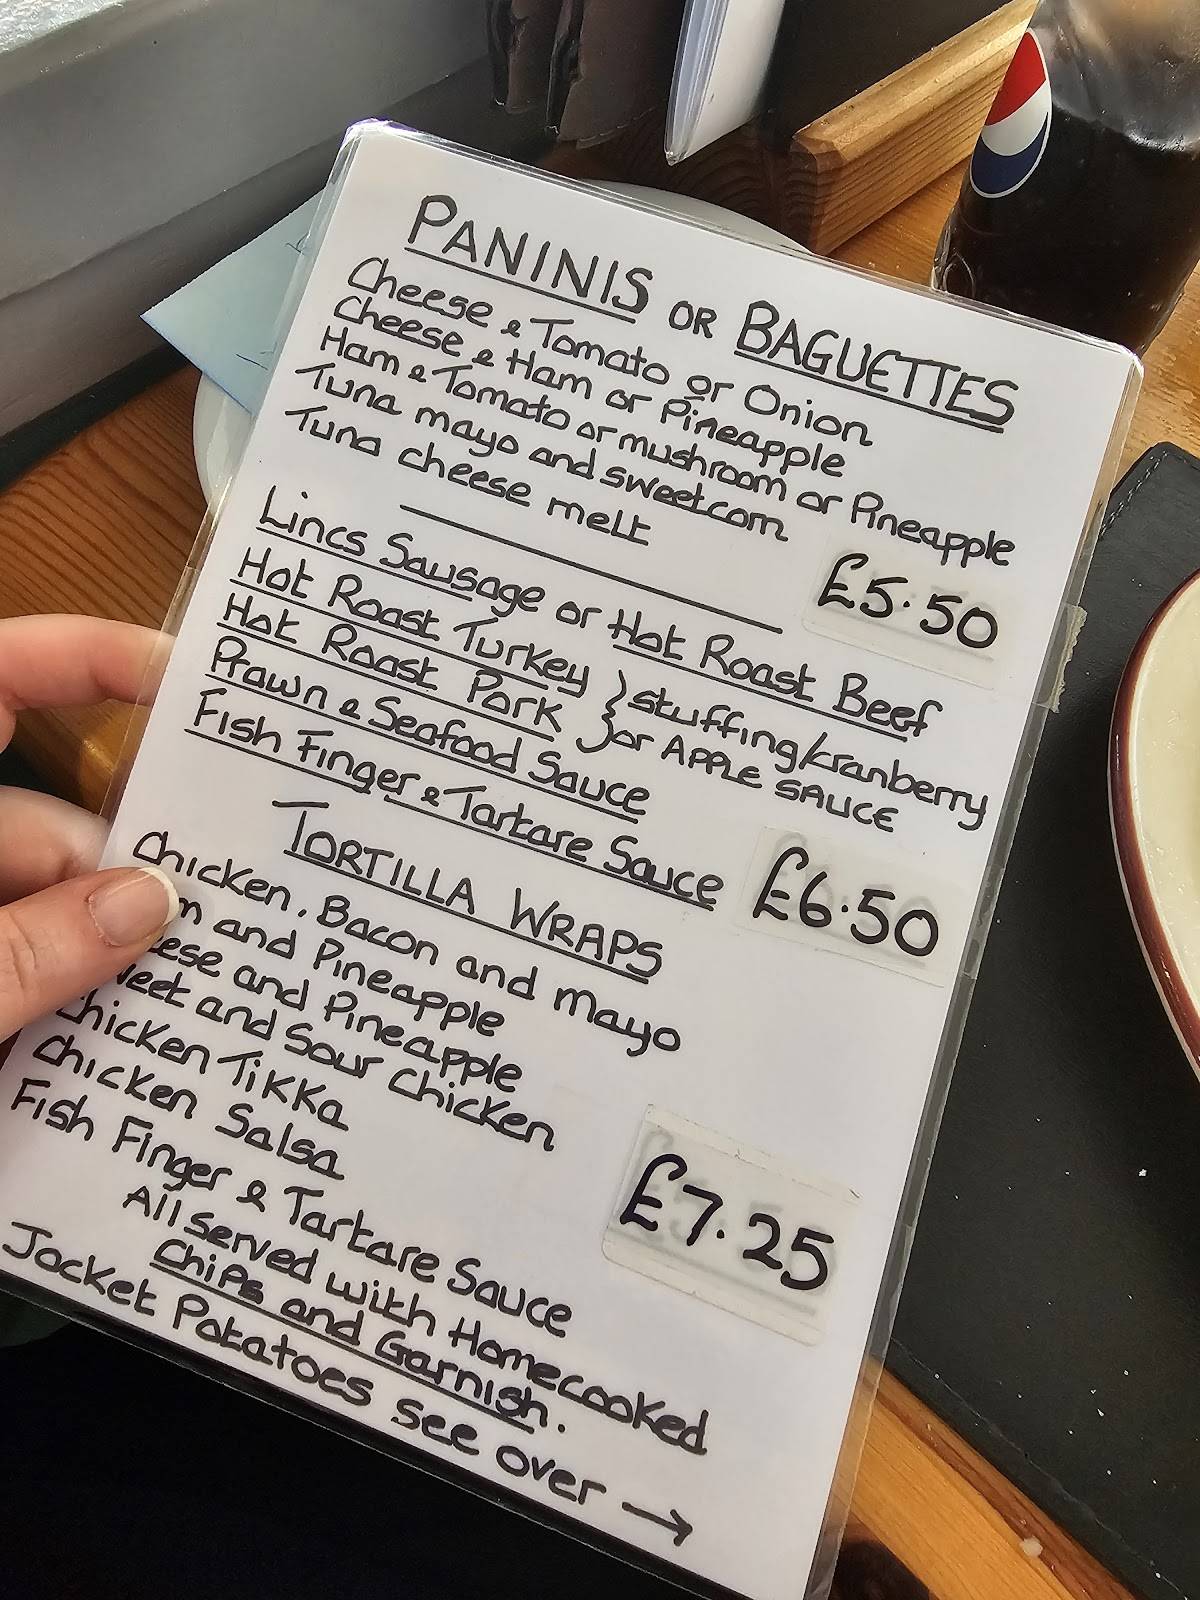 PANINIS OR BAGUETTES
Cheese & Tomato or Onion
Cheese & Ham or Pineapple
Ham & Tomato or mushroom or Pineapple
Tuna mayo and sweetcorn
Tuna cheese melt
£5.50
Lincs Sausage or Hot Roast Beef
Hot Roast Turkey } stuffing/cranberry
Hot Roast Pork } or APPLE SAUCE
Prawn & Seafood Sauce
Fish Finger & Tartare Sauce
£6.50
TORTILLA WRAPS
Chicken, Bacon and Mayo
m and Pineapple
eese and Pineapple
weet and Sour Chicken
Chicken Tikka
Chicken Salsa
Fish Finger & Tartare Sauce
£7.25
All served with Homecooked
Chips and Garnish.
Jacket Potatoes see over →